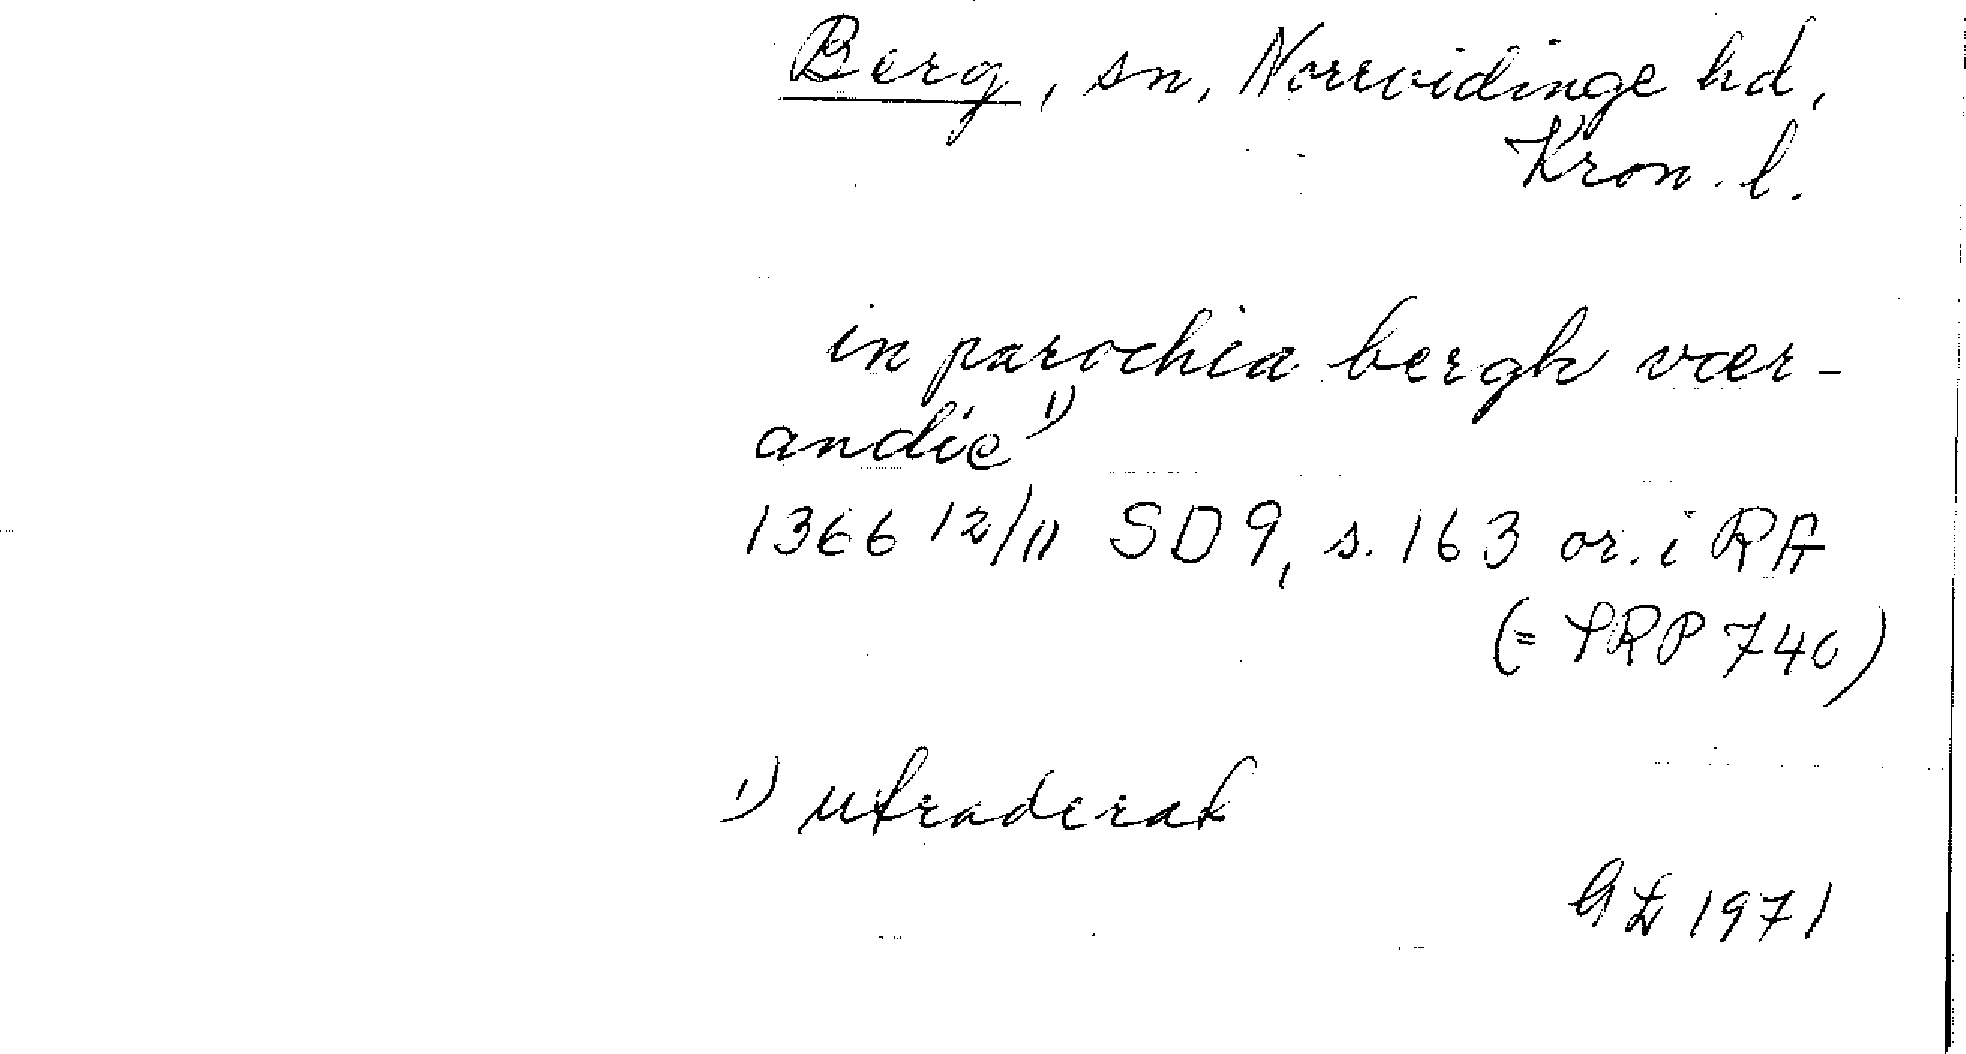 Berg, sn, Norrvidinge hd,
Kron. l.
in parochia bergh vær-
andie 1)
1366 12/11 SD 9, s. 163 or. i RA
(= SRP 740)
1) utraderat
GL 1971